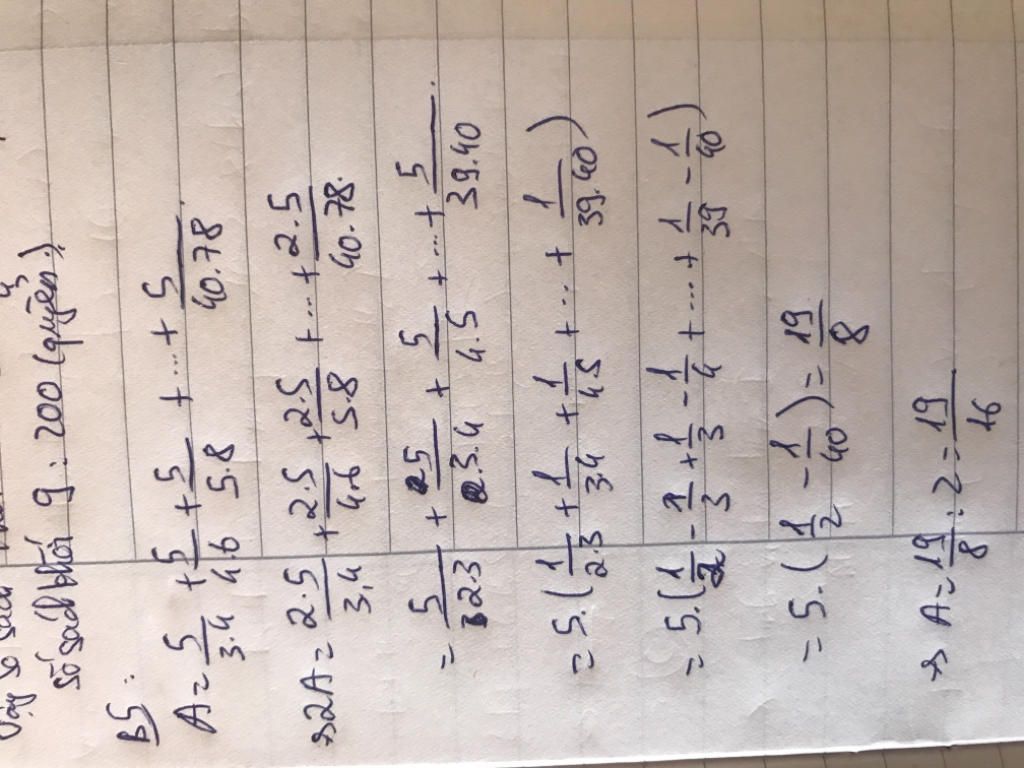 số sách khối 9 : 200 (quyển)
B5 :
A = 5/3.4 + 5/4.6 + 5/5.8 + ... + 5/40.78
=> 2A = 2.5/3.4 + 2.5/4.6 + 2.5/5.8 + ... + 2.5/40.78.
= 5/2.3 + 5/3.4 + 5/4.5 + ... + 5/39.40
= 5.(1/2.3 + 1/3.4 + 1/4.5 + ... + 1/39.40)
= 5.(1/2 - 1/3 + 1/3 - 1/4 + ... + 1/39 - 1/40)
= 5.(1/2 - 1/40) = 19/8
=> A = 19/8 : 2 = 19/16